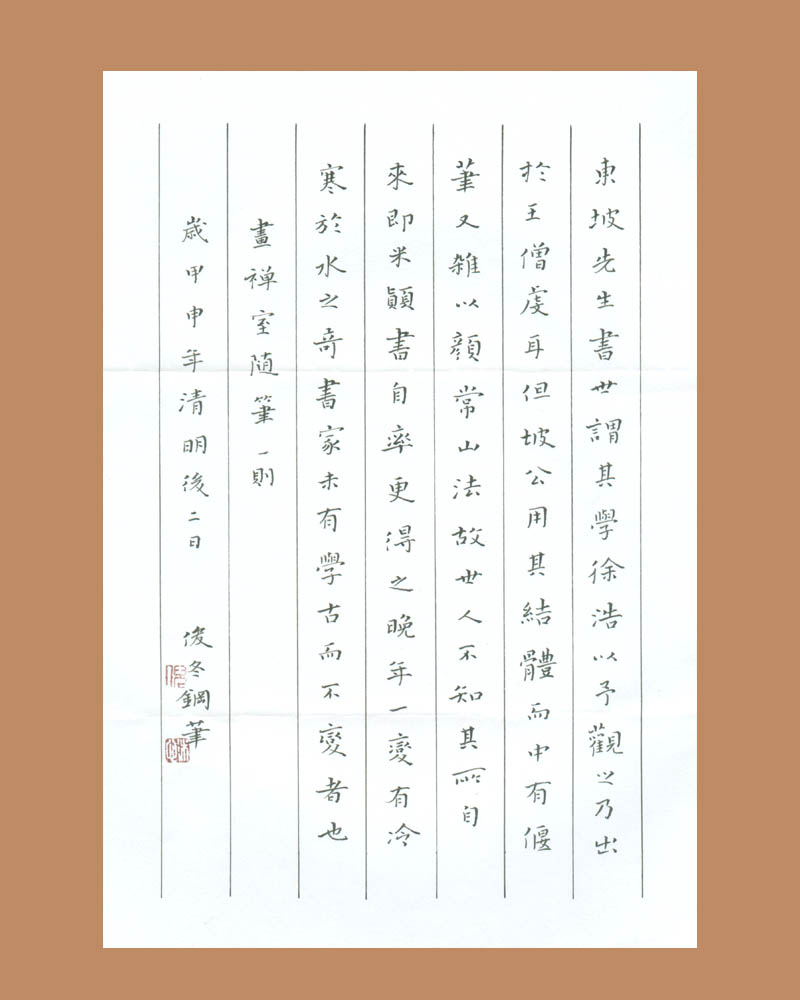 東坡先生書世謂其學徐浩以予觀之乃出
於王僧虔耳但坡公用其結體而中有偃
筆又雜以顏常山法故世人不知其所自
來即米顛書自率更得之晚年一變有冷
寒於水之奇書家未有學古而不變者也
畫禅室随筆一則
歲甲申年清明後二日
俊冬鋼筆